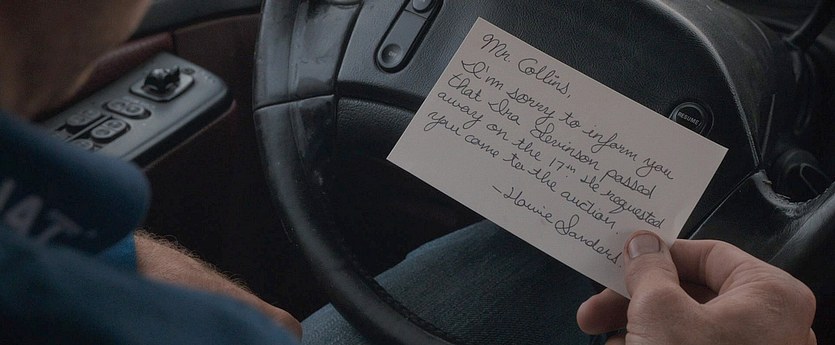 Mr. Collins,
I'm sorry to inform you
that Ira Levinson passed
away on the 17th. He requested
you come to the auction.
– Howie Sanders
RESUME